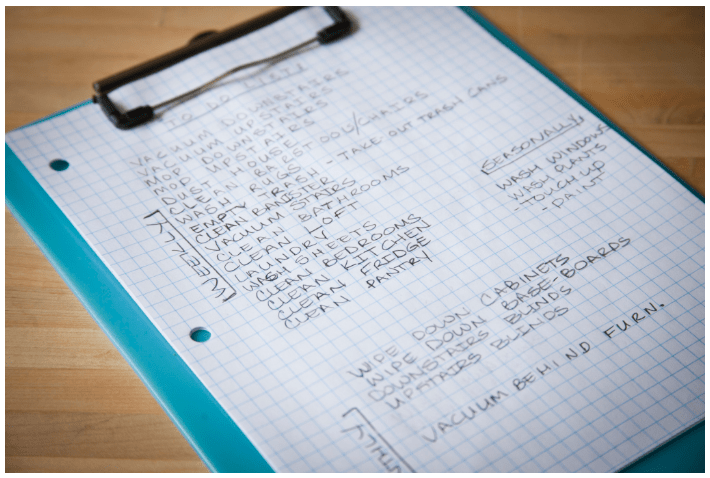 TO DO LIST!
VACUUM DOWNSTAIRS
VACUUM UPSTAIRS
MOP DOWNSTAIRS
MOP UPSTAIRS
DUST HOUSE
CLEAN BARSTOOLS/CHAIRS
WASH RUGS
EMPTY TRASH - TAKE OUT TRASH CANS
CLEAN BANISTER
VACUUM STAIRS
CLEAN BATHROOMS
CLEAN LOFT
LAUNDRY
WASH SHEETS
CLEAN BEDROOMS
CLEAN KITCHEN
CLEAN FRIDGE
CLEAN PANTRY
WEEKLY
SEASONALLY
WASH WINDOWS
WASH PLANTS
- TOUCH UP
- PAINT
WIPE DOWN CABINETS
WIPE DOWN BASE-BOARDS
DOWNSTAIRS BLINDS
UPSTAIRS BLINDS
VACUUM BEHIND FURN.